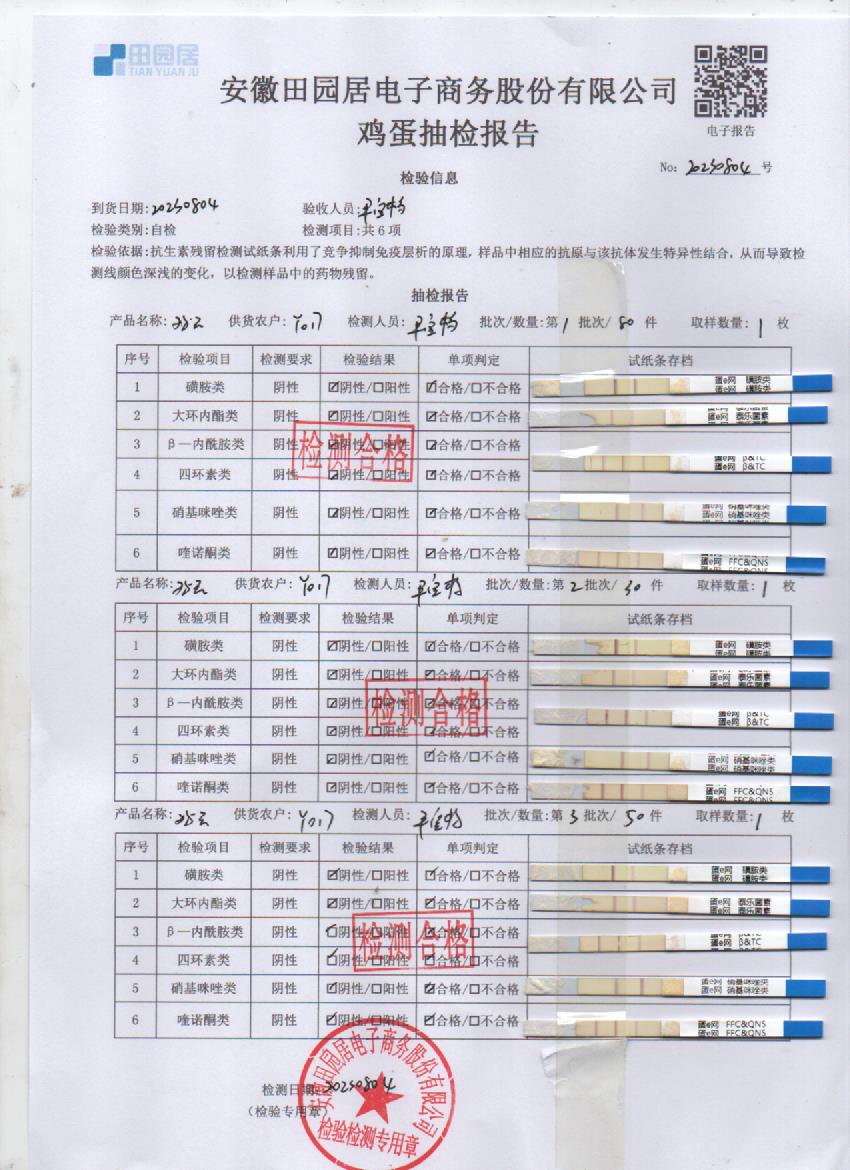 田园居
TIAN YUAN JU
安徽田园居电子商务股份有限公司
鸡蛋抽检报告
电子报告
No: 20250804 号
检验信息
到货日期:20250804 验收人员:
检验类别:自检 检测项目:共6项
检验依据:抗生素残留检测试纸条利用了竞争抑制免疫层析的原理，样品中相应的抗原与该抗体发生特异性结合，从而导致检
测线颜色深浅的变化，以检测样品中的药物残留。
抽检报告
产品名称: 供货农户: Y017 检测人员: 批次/数量:第 1 批次/ 80 件 取样数量: 1 枚
序号 检验项目 检测要求 检验结果 单项判定 试纸条存档
1 磺胺类 阴性 ☑阴性/☐阳性 ☑合格/☐不合格 蛋e网 磺胺类
蛋e网 磺胺类
2 大环内酯类 阴性 ☑阴性/☐阳性 ☑合格/☐不合格 蛋e网 泰乐菌素
3 β—内酰胺类 阴性 ☑阴性/☐阳性 ☑合格/☐不合格 蛋e网 β&TC
蛋e网 β&TC
检测合格
4 四环素类 阴性 ☑阴性/☐阳性 ☑合格/☐不合格
5 硝基咪唑类 阴性 ☑阴性/☐阳性 ☑合格/☐不合格 蛋e网 硝基咪唑类
6 喹诺酮类 阴性 ☑阴性/☐阳性 ☑合格/☐不合格 蛋e网 FFC&QNS
产品名称: 供货农户: Y017 检测人员: 批次/数量:第 2 批次/ 30 件 取样数量: 1 枚
序号 检验项目 检测要求 检验结果 单项判定 试纸条存档
1 磺胺类 阴性 ☑阴性/☐阳性 ☑合格/☐不合格 蛋e网 磺胺类
蛋e网 磺胺类
2 大环内酯类 阴性 ☑阴性/☐阳性 ☑合格/☐不合格 蛋e网 泰乐菌素
3 β—内酰胺类 阴性 ☑阴性/☐阳性 ☑合格/☐不合格 蛋e网 β&TC
蛋e网 β&TC
检测合格
4 四环素类 阴性 ☑阴性/☐阳性 ☑合格/☐不合格
5 硝基咪唑类 阴性 ☑阴性/☐阳性 ☑合格/☐不合格 蛋e网 硝基咪唑类
蛋e网 硝基咪唑类
6 喹诺酮类 阴性 ☑阴性/☐阳性 ☑合格/☐不合格 蛋e网 FFC&QNS
蛋e网 FFC&QNS
产品名称: 供货农户: Y017 检测人员: 批次/数量:第 3 批次/ 50 件 取样数量: 1 枚
序号 检验项目 检测要求 检验结果 单项判定 试纸条存档
1 磺胺类 阴性 ☑阴性/☐阳性 ☑合格/☐不合格 蛋e网 磺胺类
蛋e网 磺胺类
2 大环内酯类 阴性 ☑阴性/☐阳性 ☑合格/☐不合格 蛋e网 泰乐菌素
蛋e网 泰乐菌素
3 β—内酰胺类 阴性 ☑阴性/☐阳性 ☑合格/☐不合格 蛋e网 β&TC
蛋e网 β&TC
检测合格
4 四环素类 阴性 ☑阴性/☐阳性 ☑合格/☐不合格
5 硝基咪唑类 阴性 ☑阴性/☐阳性 ☑合格/☐不合格 蛋e网 硝基咪唑类
蛋e网 硝基咪唑类
6 喹诺酮类 阴性 ☑阴性/☐阳性 ☑合格/☐不合格 蛋e网 FFC&QNS
蛋e网 FFC&QNS
检测日期:20250804
（检验专用章）
安徽田园居电子商务股份有限公司
检验检测专用章